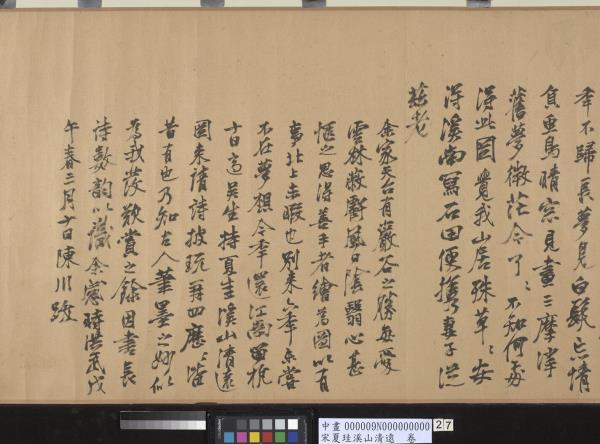 年不歸長夢見白髮忘情
負魚鳥晴窗見畫三摩挲
舊夢微茫今了了不知何處
得此圖覺我山居殊草草安
得溪南冩石田便攜妻子従
茲老
余家天台有巖谷之勝每愛
雲林巘斷風日陰翳心甚
愜之思得善手者繪為圖以自
事北上未暇也別來六年未嘗
不在夢想今季還江南留杭
十日適吴生持夏圭溪山清遠
圖来請詩披玩再四歴歴皆
昔有也乃知古人筆墨之妙
為我發歎賞之餘因書長
詩數韵以識余懷時洪武戊
午春三月十日陳川跋
中畫 000009N000000000
宋夏珪溪山清遠 卷
27